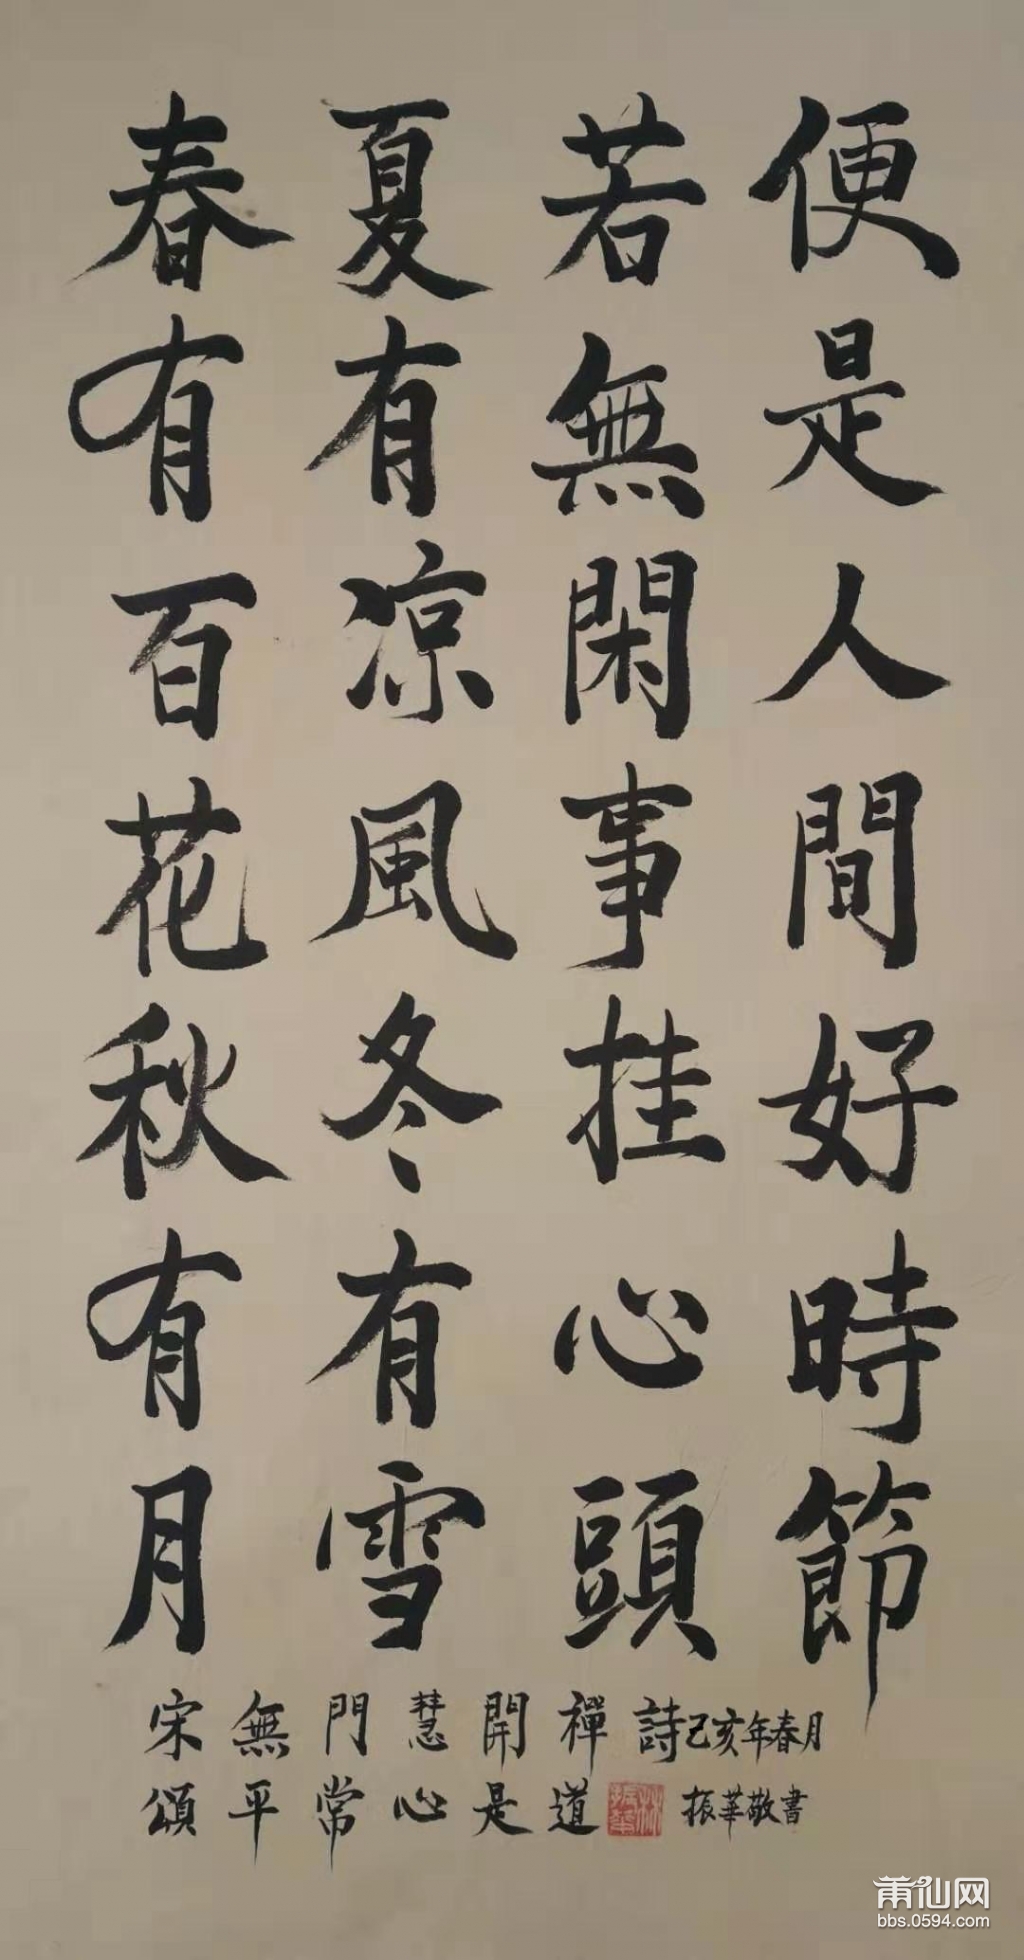 春有百花秋有月
夏有凉風冬有雪
若無閑事挂心頭
便是人間好時節
宋無門慧開禪詩己亥年春月
頌平常心是道
林振華
振華敬書
莆仙网
bbs.0594.com